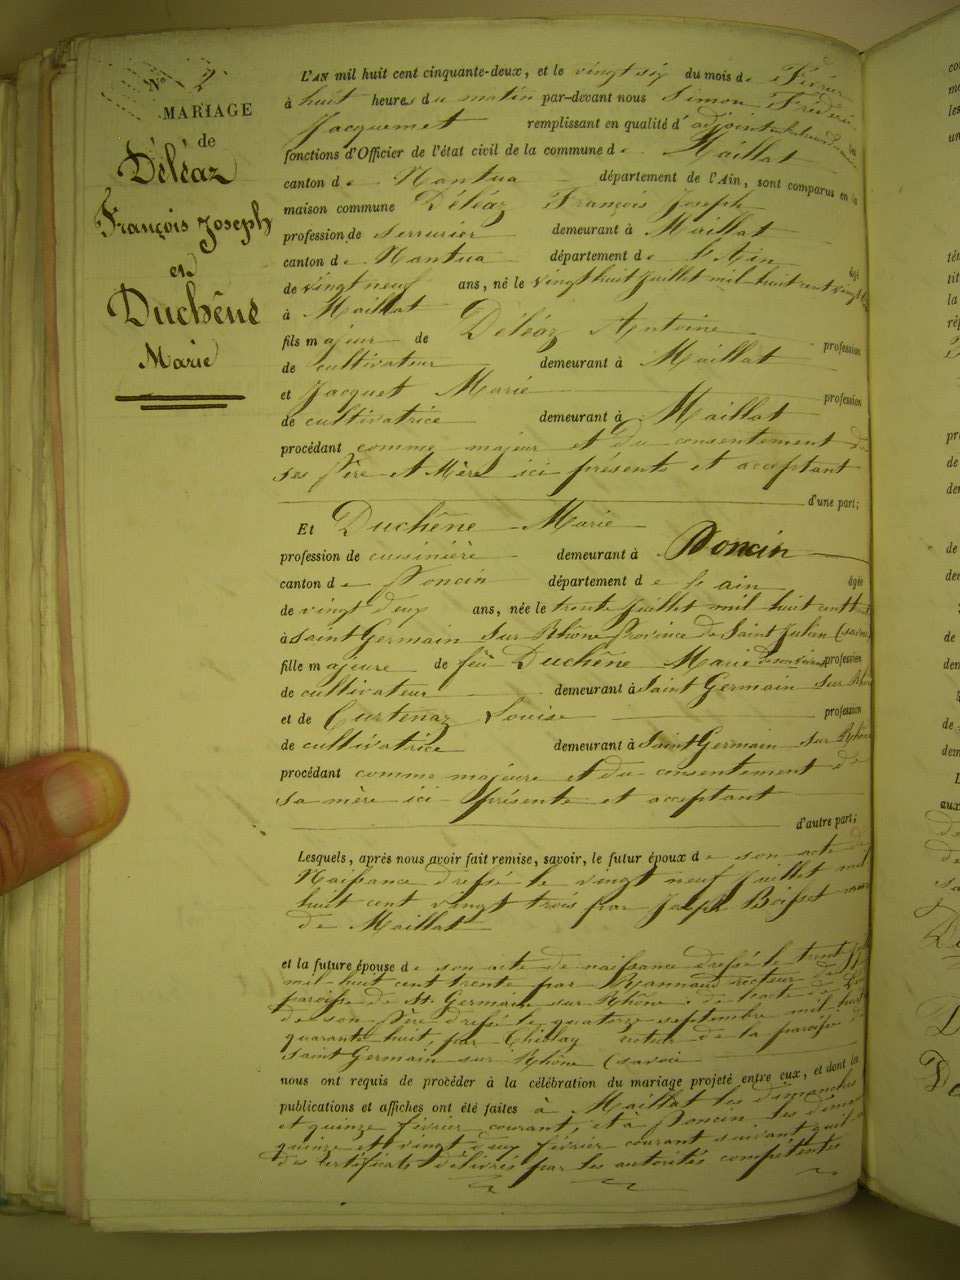 N° 2
MARIAGE
de
Déléaz
François Joseph
et
Duchêne
Marie
L'AN mil huit cent cinquante-deux, et le vingt six du mois de Février
à huit heures du matin par-devant nous Simon Frédéric
Jacquemet remplissant en qualité d'adjoint les
fonctions d'Officier de l'état civil de la commune de Maillat
canton de Nantua département de l'Ain, sont comparus en la
maison commune Déléaz François Joseph
profession de serrurier demeurant à Maillat
canton de Nantua département de l'Ain âgé
de vingt neuf ans, né le vingt huit juillet mil huit cent vingt
à Maillat
fils majeur de Déléaz Antoine profession
de cultivateur demeurant à Maillat
et Jacquet Marie profession
de cultivatrice demeurant à Maillat
procédant comme majeur et du consentement de
ses Père et Mère ici présents et acceptant
d'une part;
Et Duchêne Marie
profession de cuisinière demeurant à Poncin
canton de Poncin département de l'ain âgée
de vingt deux ans, née le trente juillet mil huit cent
à Saint Germain sur Rhône province de Saint Julien (savoie)
fille majeure de feu Duchêne Marie de son vivant profession
de cultivateur demeurant à Saint Germain sur Rhône
et de Curtenaz Louise profession
de cultivatrice demeurant à Saint Germain sur Rhône
procédant comme majeure et du consentement de
sa mère ici présente et acceptant
d'autre part;
Lesquels, après nous avoir fait remise, savoir, le futur époux de son acte de
Naissance dressé le vingt neuf juillet mil
huit cent vingt trois par Joseph Boisset maire
de Maillat
et la future épouse de son acte de naissance dressé le trente
mil huit cent trente par recteur de la
paroisse de St. Germain sur Rhône: de l'acte de
de son Père dressé le quatorze septembre mil huit
quarante huit, par recteur de la paroisse de
Saint Germain sur Rhône (savoie
nous ont requis de procéder à la célébration du mariage projeté entre eux, et dont les
publications et affiches ont été faites à Maillat les dimanches
et quinze février courant, et à Poncin les
quinze et vingt deux février courant suivant qu'il
des certificats délivrés par les autorités compétentes